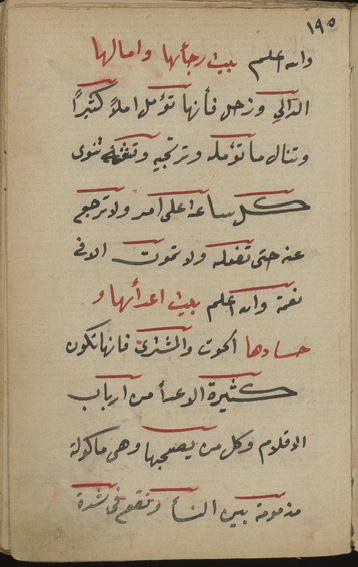 ١٩٥
والله اعلم بيت رجأيها وامالها
الدالي وزحل فأنها تؤمل املاً كثيرًا
وتنال ما تؤمله وترتجيه وتنوى
كل ساعه على امر ولا ترجع
عنه حتى تفعله ولا تموت الا في
نعمة والله اعلم بيت اعدأيها و
حسادها الحوت والمشترى فانها تكون
كثيرة الاعدأ من ارباب
الاقلام وكل من يصحبها وهي ماكولة
مذمومة بين النسأ وتقع في شدة